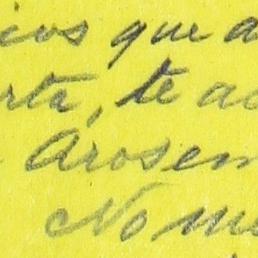 icos que a
rta, te ac
Arosem
No me